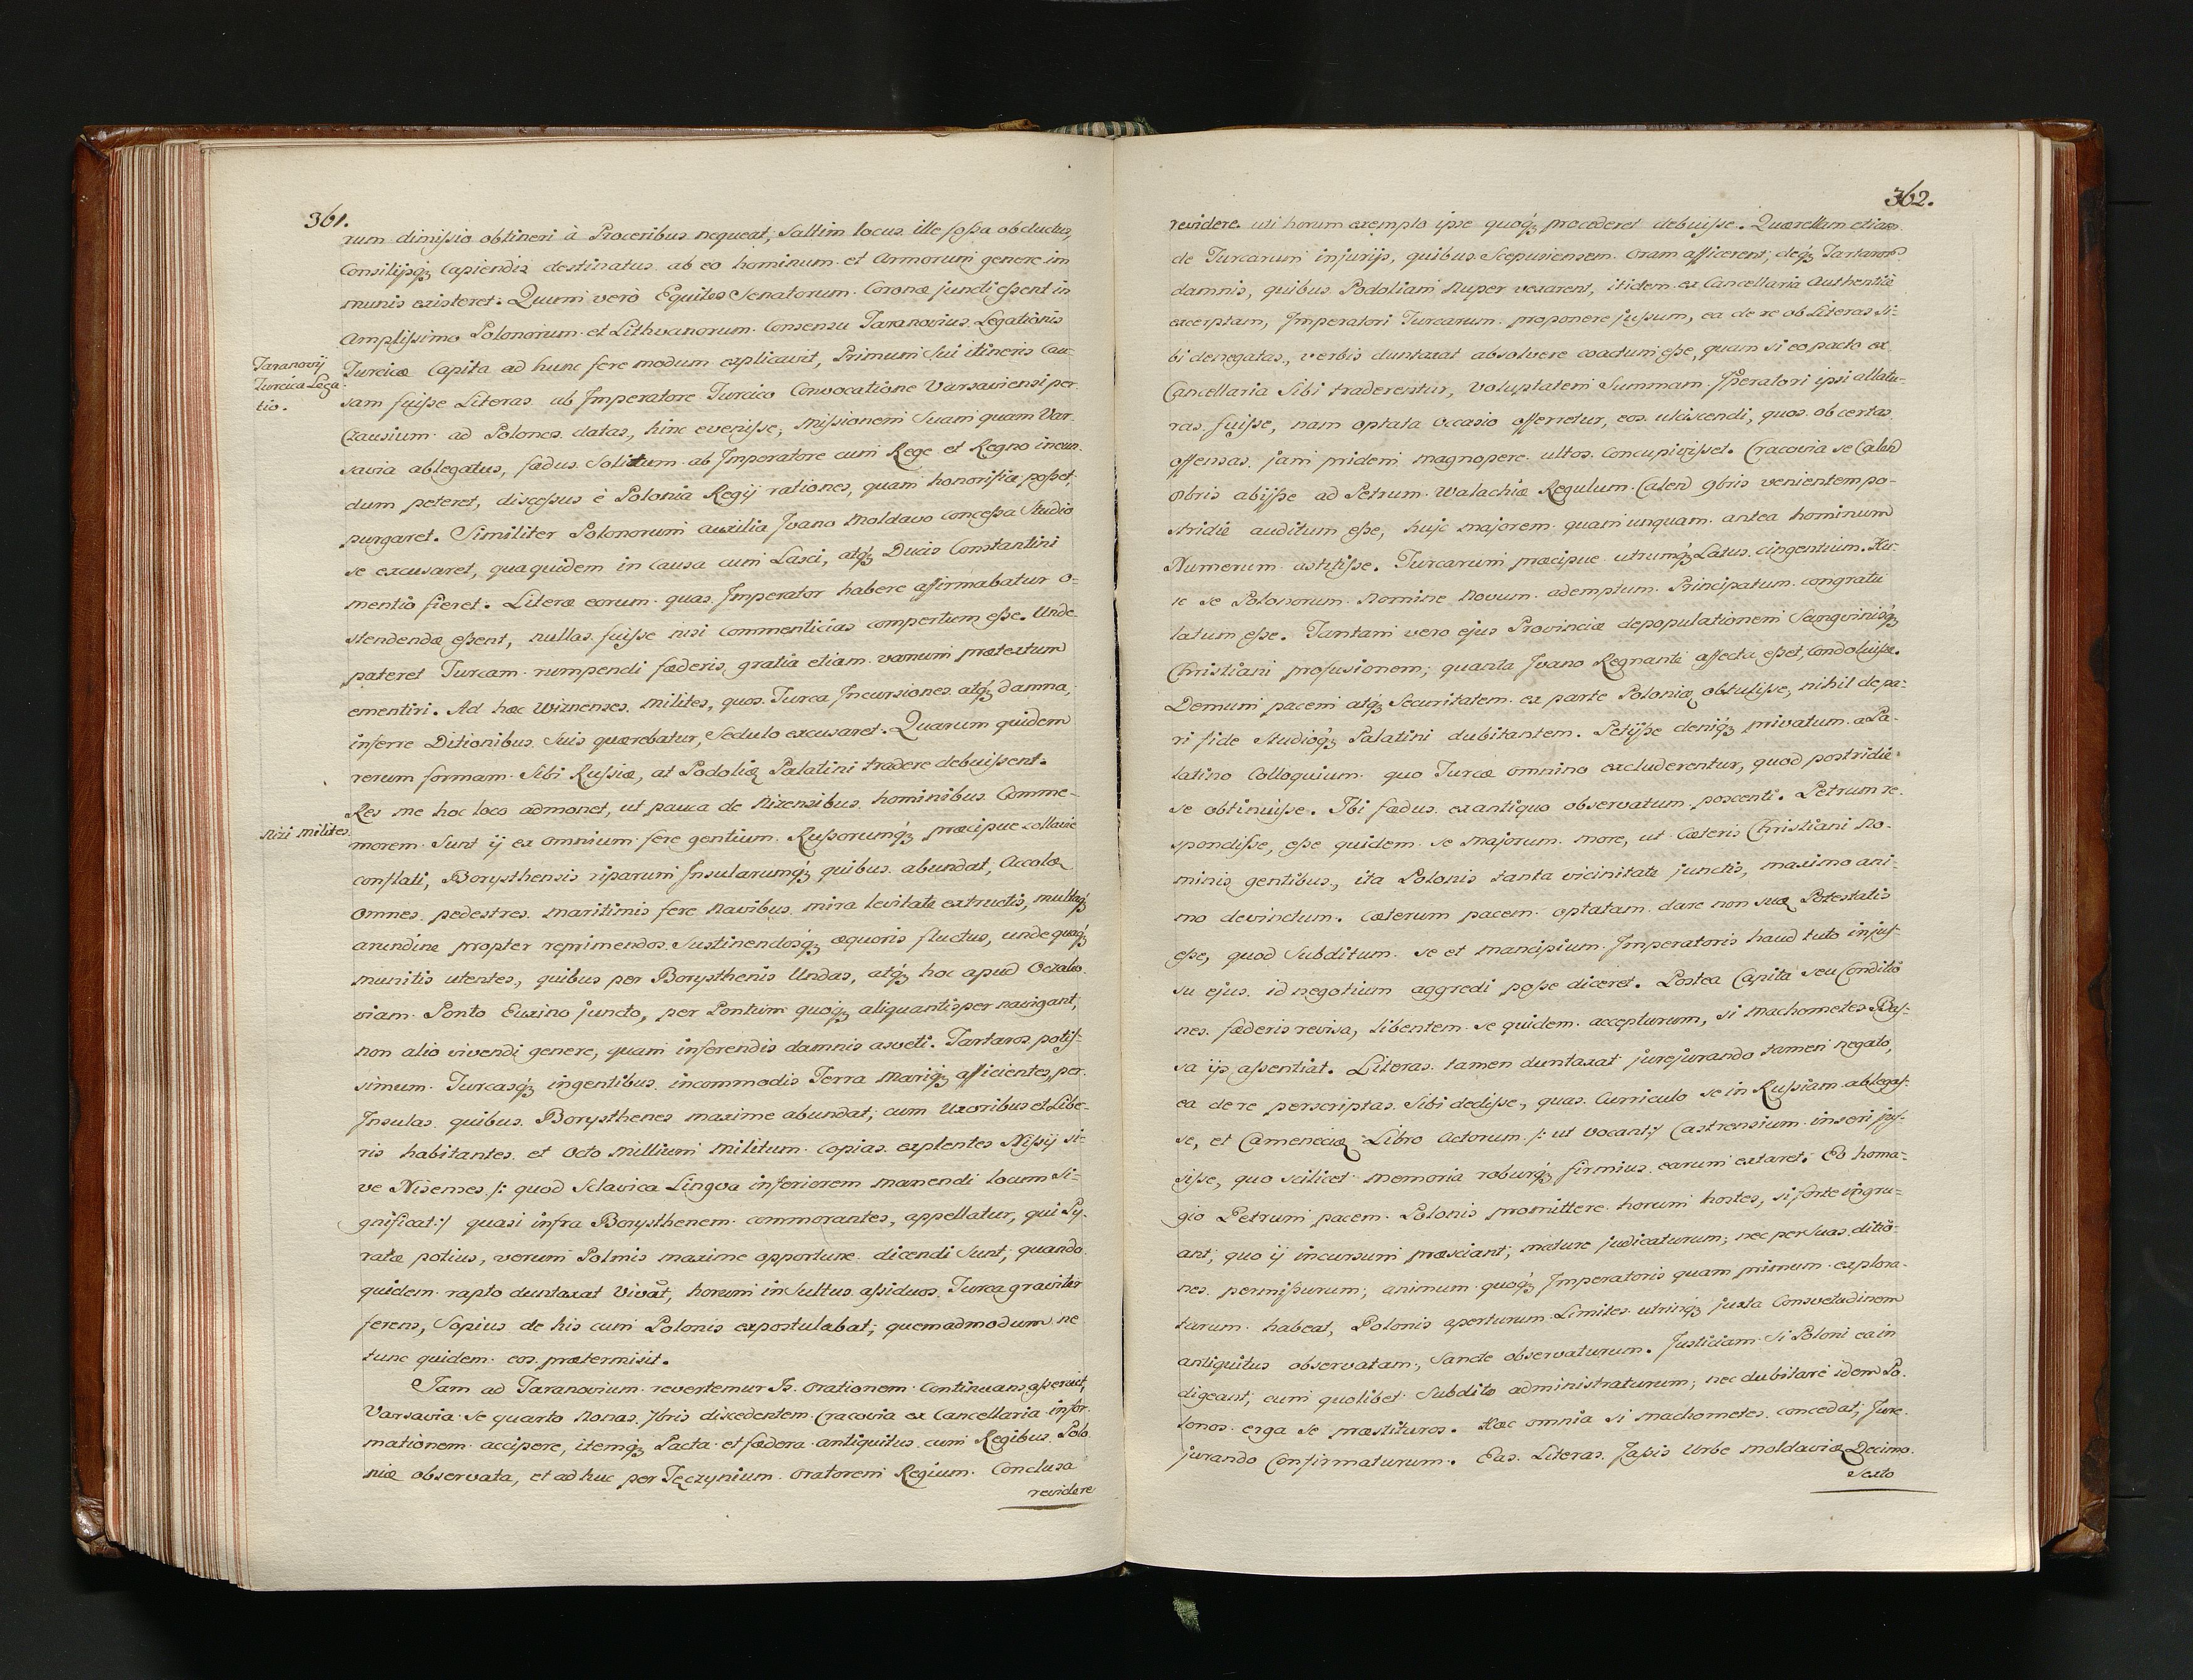 361.
rum dimissio obtineri à Proceribus nequeat, Saltim locus ille fossa obductus,
Consilijsq́ꝫ Capiendis destinatus ab eo hominum et Armorum genere im
munis existeret. Quum verò Equites Senatorum Coronæ juncti essent in
Amplissimo Polonorum et Lithvanorum Consensu Taranovius Legationis
Taranovij
Turcica Lega
tio.
Turcicæ Capita ad hunc fere modum explicavit, Primum Sui itineris Cau-
sam fuisse Literas ab Imperatore Turcico Convocatione Varsaviensi per
Czausium ad Polonos datas, hinc evenisse, Missionem Suam quam Var
savia ablegatus, fœdus Solitum ab Imperatore cum Rege et Regno ineun-
dum peteret, discessus è Polonia Regij rationes, quam honorificæ posset
purgaret. Similiter Polonorum auxilia Ivano Moldavo concessa Studio
se excusaret, qua quidem in Causa cum Lasci, atq́ꝫ Ducis Constantini
mentio fieret. Literæ eorum quas Imperator habere affirmabatur o-
stendendæ essent, nullas fuisse nisi commenticias compertum esse. Unde
pateret Turcam rumpendi fœderis gratia etiam vanum prætextum
ementiri. Ad hæc Wiznenses Milites, quos Turca Incursiones atq́ꝫ damna,
inferre Ditionibus Suis quærebatur, Sedulo excusaret. Quarum quidem
rerum formam Sibi Russiæ, at Podoliæ Palatini tradere debuissent.
Res me hoc loco admonet, ut pauca de Nizensibus hominibus Comme-
Nizi Milites.
morem Sunt ij ex omnium fere gentium Russorumq́ꝫ præcipue colluvie
conflati, Borysthensis riparum Insularumq́ꝫ quibus abundat, Accolæ
omnes pedestres maritimis fere Navibus mira levitate extructis, multaq́ꝫ
arundine propter reprimendos Sustinendosq́ꝫ æquoris fluctus, undequaq́ꝫ
munitis utentes, quibus per Borysthenis Undas, atq́ꝫ hoc apud Oczako
viam Ponto Euxino juncto, per Pontum quoq́ꝫ aliquantisper navigant,
non alio vivendi genere, quam inferendis damnis asveti. Tartaros potis-
simum Turcasq́ꝫ ingentibus incommodis Terra Mariq́ꝫ afficientes, per
Insulas quibus Borysthenes maxime abundat, cum Uxoribus et Libe-
ris habitantes et Octo Millium Militum Copias explentes Nissij si-
ve Nisenses /: quod Sclavica Lingva inferiorem manendi locum si-
gnificat :/ quasi infra Borysthenem commorantes, appellatur, qui Py-
ratæ potius, verum Polmis maxime opportune dicendi Sunt, quando
quidem rapto duntaxat Vivāt, horum insultus assiduos Turca graviter
ferens, Sæpius de his cum Polonis expostulabat, quemadmodum ne
tunc quidem eos prætermisit.
Jam ad Taranovium revertemur Is orationem Continuans asseruit,
Varsavia se quarto Nonas 7bris discedentem Cracovia ex Cancellaria infor-
mationem accipere, itemq́ꝫ Pacta et fœdera antiquitus cum Regibus Polo
niæ observata, et ad huc per Tęczynium Oratorem Regium Conclusa
revidere
362.
revidere uti horum exemplo ipse quoq́ꝫ procederet debuisse. Quærellam etiam
de Turcarum injurijs, quibus Scepusiensem oram afficerent, deq́ꝫ Tartaror
damnis, quibus Podoliam Nuper vexarent, itidem ex Cancellaria Authentice
excerptam, Imperatori Turcarum proponere jussum, ea de re ob Literas Si-
bi denegatas, verbis duntaxat absolvere coactum esse, quam si eo pacto ex
Cancellaria Sibi traderentur, Voluptatem Summam Iperatori ipsi allatu-
ras fuisse, nam optata occasio offerretur, eos ulciscendi, quos ob certas
offensas jam pridem magnopere ultos Concupivisset. Cracovia se Calend
obris abijsse ad Petrum Walachiæ Regulum Calend 9bris venientem po-
stridie auditum esse, hujc majorem quam unquam antea hominum
Numerum astitisse. Turcarum præcipue utrumq́ꝫ Latus cingentium. Hu-
ic se Polonorum Nomine Novum ademptum Principatum congratu
latum esse. Tantam vero ejus Provinciæ depopulationem Sangvinisq́ꝫ
Christiani profusionem, quanta Ivano Regnanti affecta esset, Condoluisse.
Demum pacem atq́ꝫ Securitatem ex parte Poloniæ obtulisse, nihil de pa-
ri fide Studioq́ꝫ Palatini dubitantem. Petijsse deniq́ꝫ privatum a Pa-
latino Colloquium quo Turcæ omnino excluderentur, quod postridie
se obtinuisse. Ibi fœdus ex antiquo observatum poscenti. Petrum re-
spondisse, esse quidem se majorum more, ut Cæteris Christiani No-
minis gentibus, ita Polonis tanta vicinitate junctis, maximo ani-
mo devinctum. Cæterum pacem optatam dare non suæ Potestatis
esse, quod Subditum se et mancipium Imperatoris haud tuto injus-
su ejus id negotium aggredi posse diceret. Postea Capita seu Conditio
nes fœderis revisa, libentem se quidem accepturum, si Machometes Bas-
sa ijs assentiat. Literas tamen duntaxat jurejurando tamen negato,
ea de re perscriptas Sibi dedisse, quas Curriculo se in Russiam ablegas-
se, et Cameneciæ Libro Actorum /: ut vocant :/ Castrensium inseri jus-
sisse, quo scilicet memoria roburq́ꝫ firmius earum extaret. Eo homa-
gio Petrum pacem Polonis promittere horum hostes, si forte ingru-
ant, quo ij incursum præsciant, mature judicaturum, nec per Suas ditio-
nes permissurum, animum quoq́ꝫ Imperatoris quam primum explora-
turum habeat, Polonis aperturum Limites utrinq́ꝫ juxta Consvetudinem
antiquitus observatam, Sancte observaturum. Justiciam Si Poloni ea in
digeant, cum quolibet Subdito administraturum, nec dubitare idem Po-
lonos erga se præstituros. Hæc omnia si Machometes concedat, Jure
jurando Confirmaturum. Eas Literas Jassis Urbe Moldaviæ Decimo
Sexto